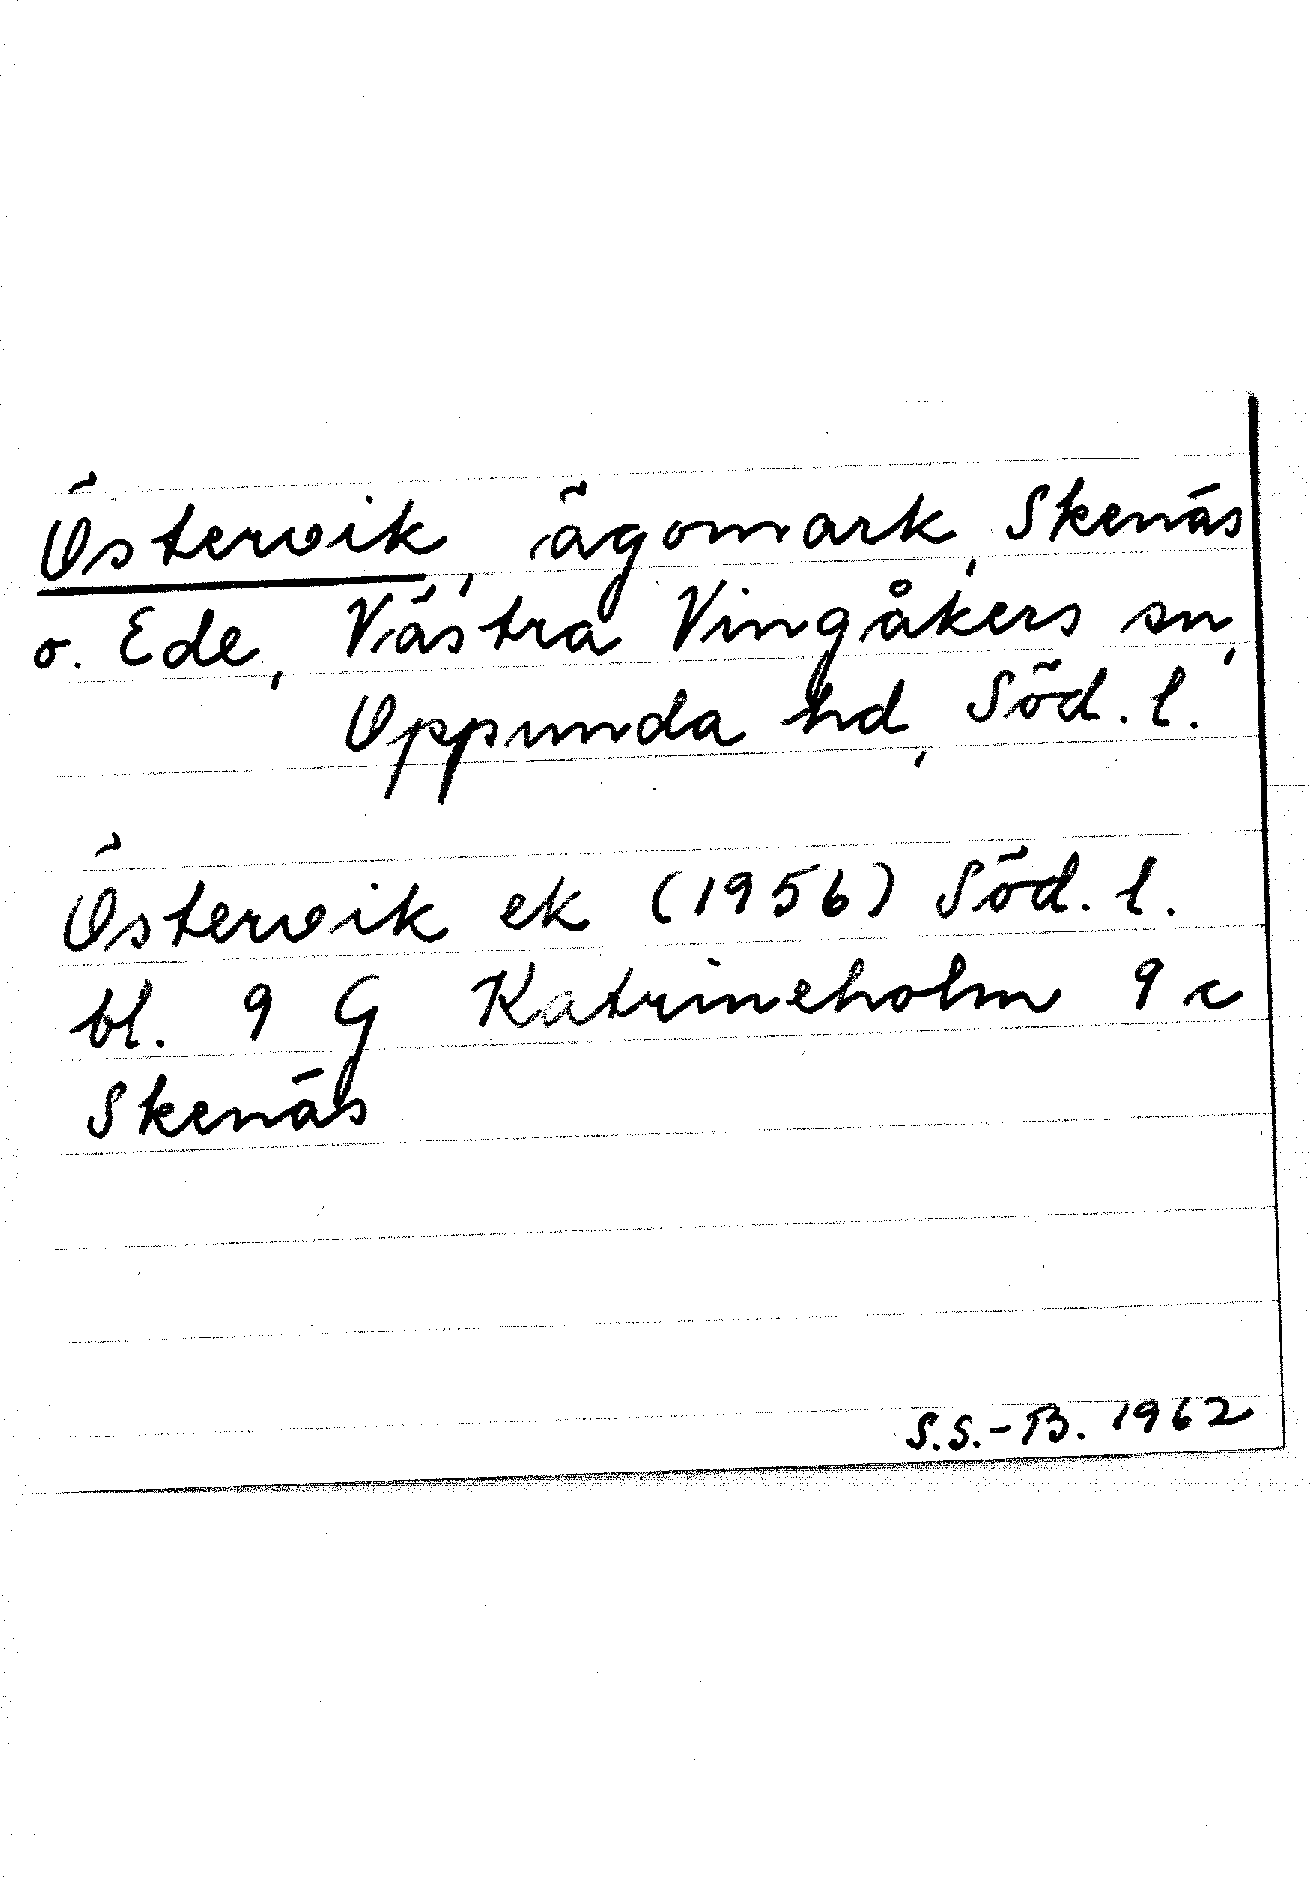 Östervik, ägomark, Skenäs
o. Ede, Västra Vingåkers sn,
Oppunda hd, Söd. l.
Östervik ek (1956) Söd. l.
bl. 9 G Katrineholm 9 c
Skenäs
S.S.-B. 1962